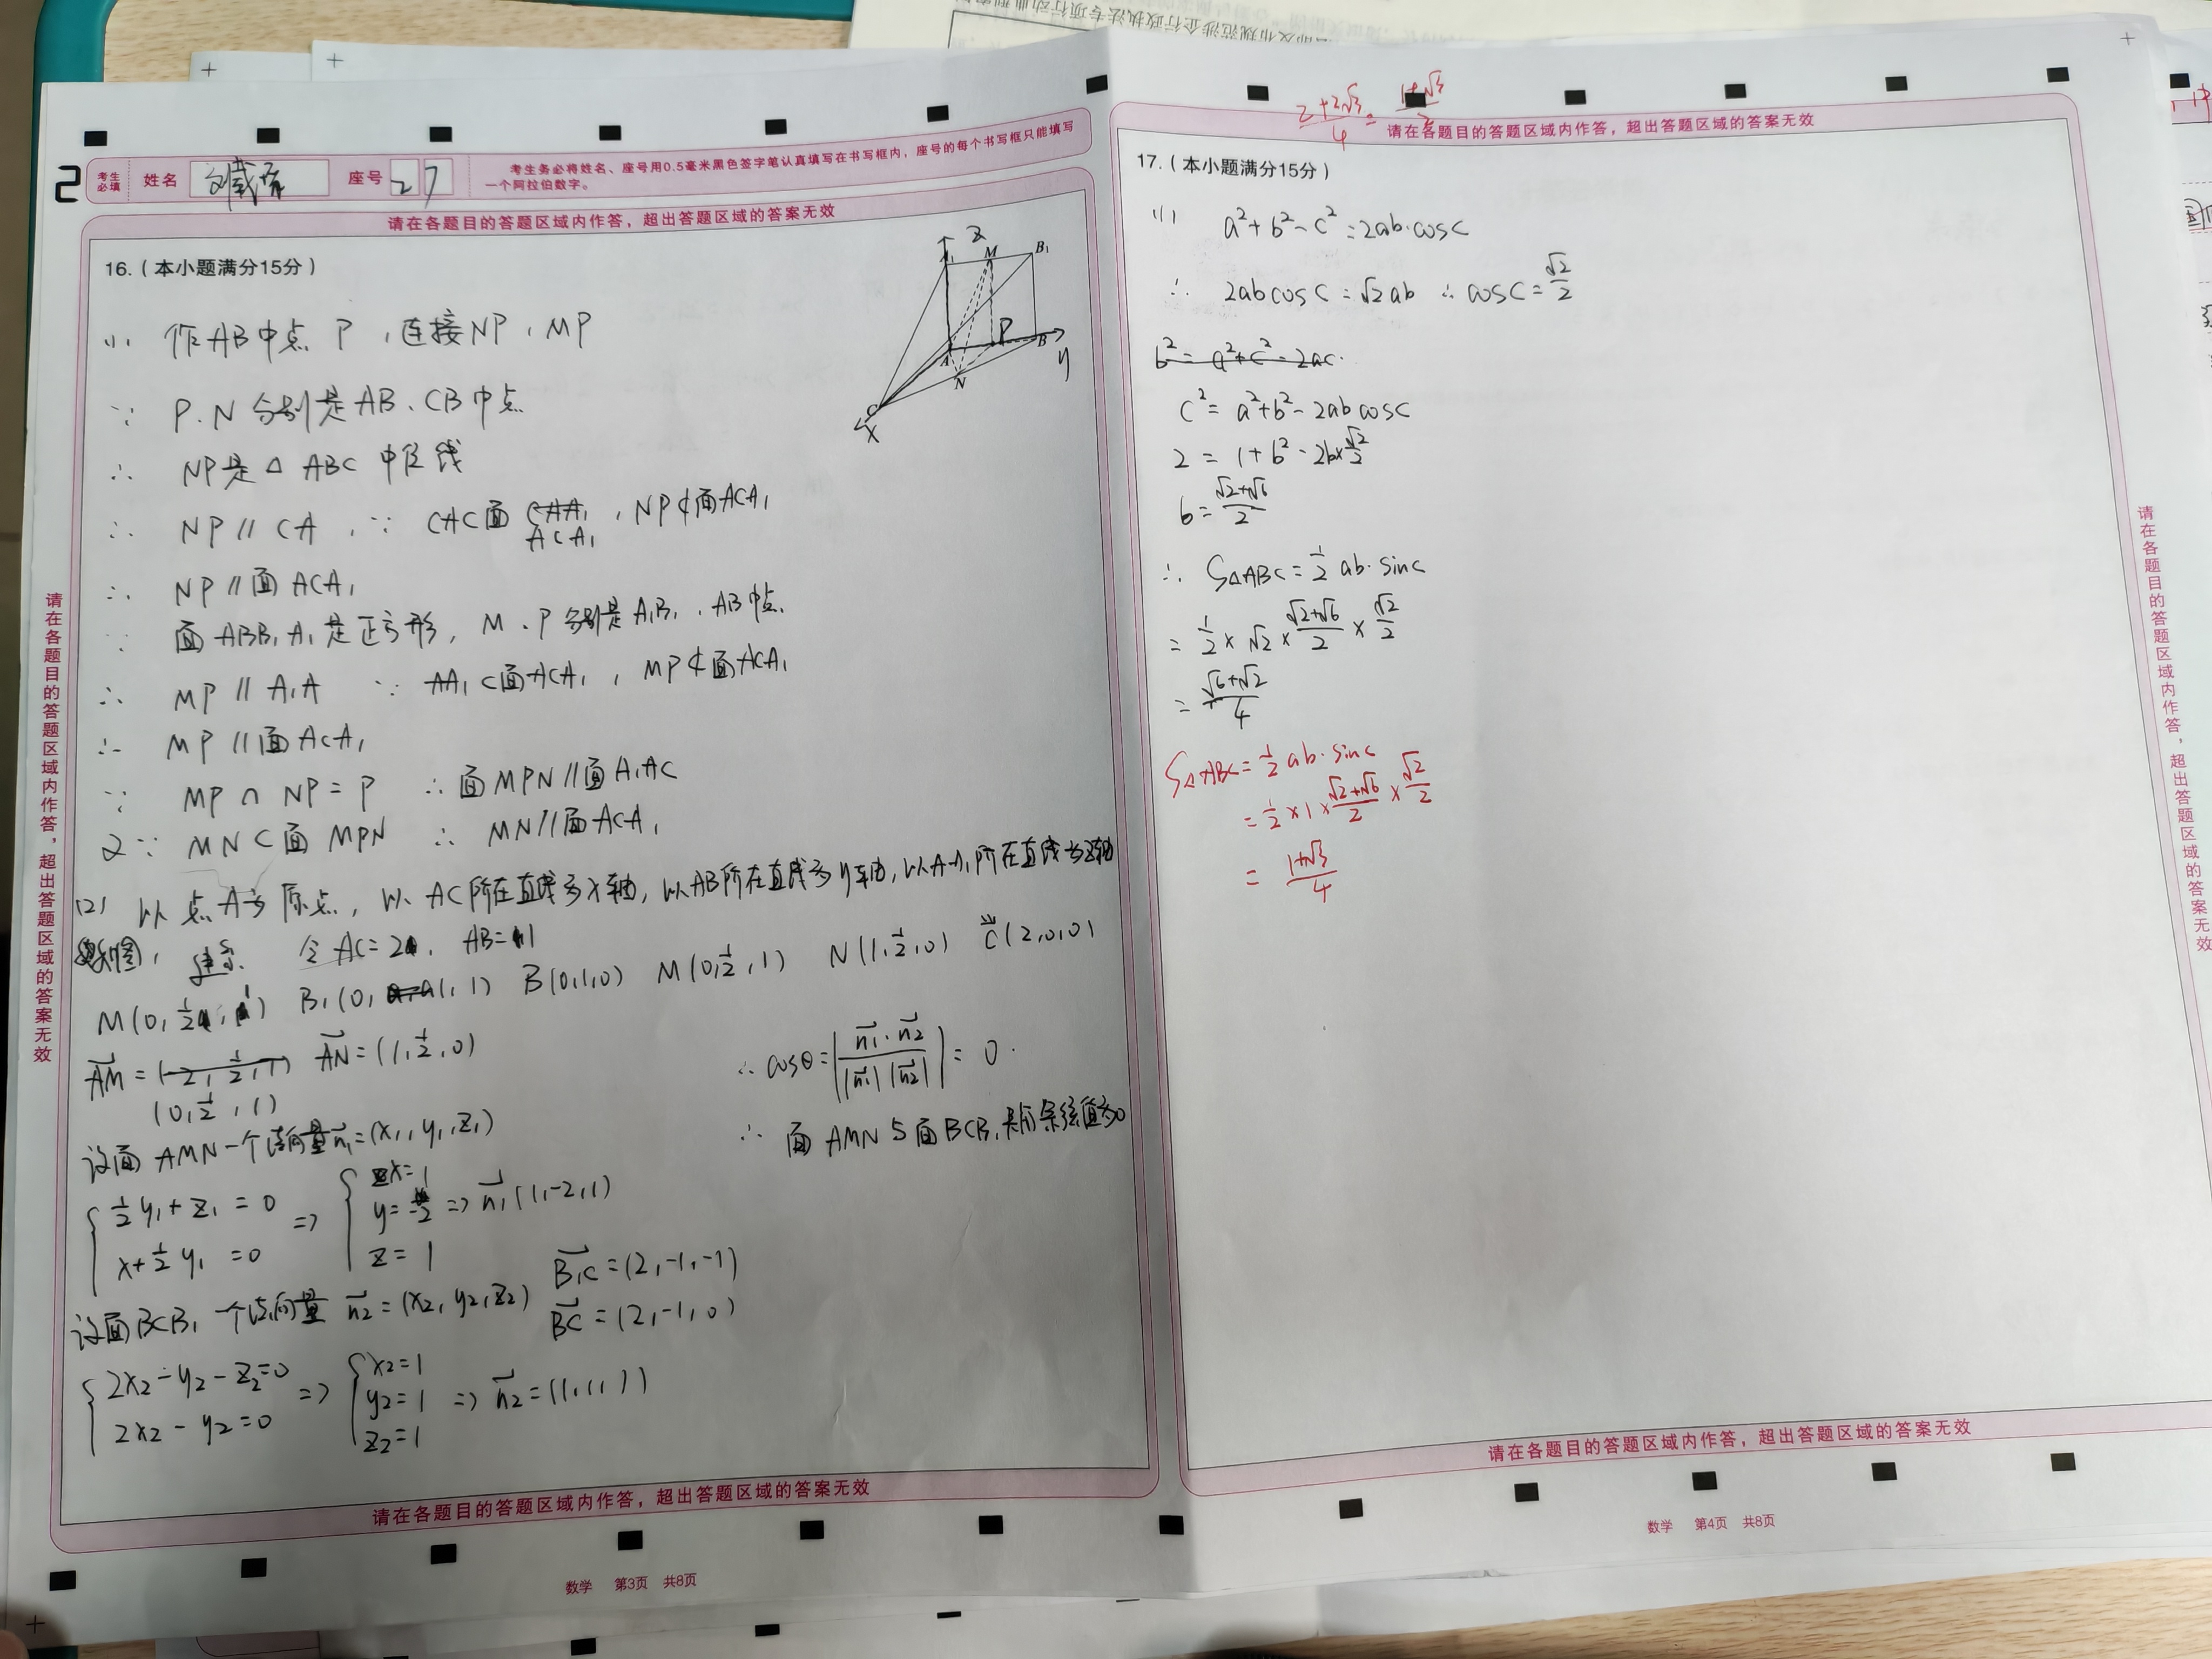 2
考生必填
姓名
座号 2 7
考生务必将姓名、座号用0.5毫米黑色签字笔认真填写在书写框内，座号的每个书写框只能填写
一个阿拉伯数字。
请在各题目的答题区域内作答，超出答题区域的答案无效
16.（本小题满分15分）
z
A₁ M B₁
A P B y
N
C
x
(1) 作AB中点 P，连接NP，MP
∵ P.N分别是AB、CB中点
∴ NP是△ABC中位线
∴ NP // CA，∵ CA⊂面 CAA₁ ACA₁，NP⊄面ACA₁
∴ NP//面ACA₁
∵ 面ABB₁A₁是正方形，M、P分别是A₁B₁、AB中点.
∴ MP // A₁A ∵ AA₁⊂面ACA₁，MP⊄面ACA₁
∴ MP //面ACA₁
∵ MP∩NP=P ∴面MPN//面A₁AC
又∵ MN⊂面MPN ∴ MN//面ACA₁
(2) 以点A为原点，以AC所在直线为x轴，以AB所在直线为y轴，以AA₁所在直线为z轴
建系. 令AC=2, AB=1
M(0,½,1) B₁(0,1,1) B(0,1,0) M(0,½,1) N(1,½,0) C(2,0,0)
AM=(-2,½,1) AN=(1,½,0)
(0,½,1)
设面AMN一个法向量n₁=(x₁,y₁,z₁)
{ ½y₁+z₁=0
x+½y₁=0 ⇒ { x=1
y=-2
z=1 ⇒ n₁(1,-2,1)
设面BCB₁一个法向量 n₂=(x₂,y₂,z₂)
B₁C=(2,-1,-1)
BC=(2,-1,0)
{ 2x₂-y₂-z₂=0
2x₂-y₂=0 ⇒ { x₂=1
y₂=1
z₂=1 ⇒ n₂=(1,1,1)
∴ cosθ=|n₁·n₂/|n₁||n₂||=0.
∴ 面AMN与面BCB₁夹角余弦值为0
请在各题目的答题区域内作答，超出答题区域的答案无效
请在各题目的答题区域内作答，超出答题区域的答案无效
数学 第3页 共8页
(2+2√3)/4=(1+√3)/2
请在各题目的答题区域内作答，超出答题区域的答案无效
17.（本小题满分15分）
(1) a²+b²-c²=2ab·cosC
∴ 2abcosC=√2ab ∴cosC=√2/2
b²=a²+c²-2ac·
c²=a²+b²-2abcosC
2=1+b²-2b×√2/2
b=(√2+√6)/2
∴ S△ABC=½ab·sinC
=½×√2×(√2+√6)/2×√2/2
=(√6+√2)/4
S△ABC=½ab·sinC
=½×1×(√2+√6)/2×√2/2
=(1+√3)/4
请在各题目的答题区域内作答，超出答题区域的答案无效
请在各题目的答题区域内作答，超出答题区域的答案无效
数学 第4页 共8页